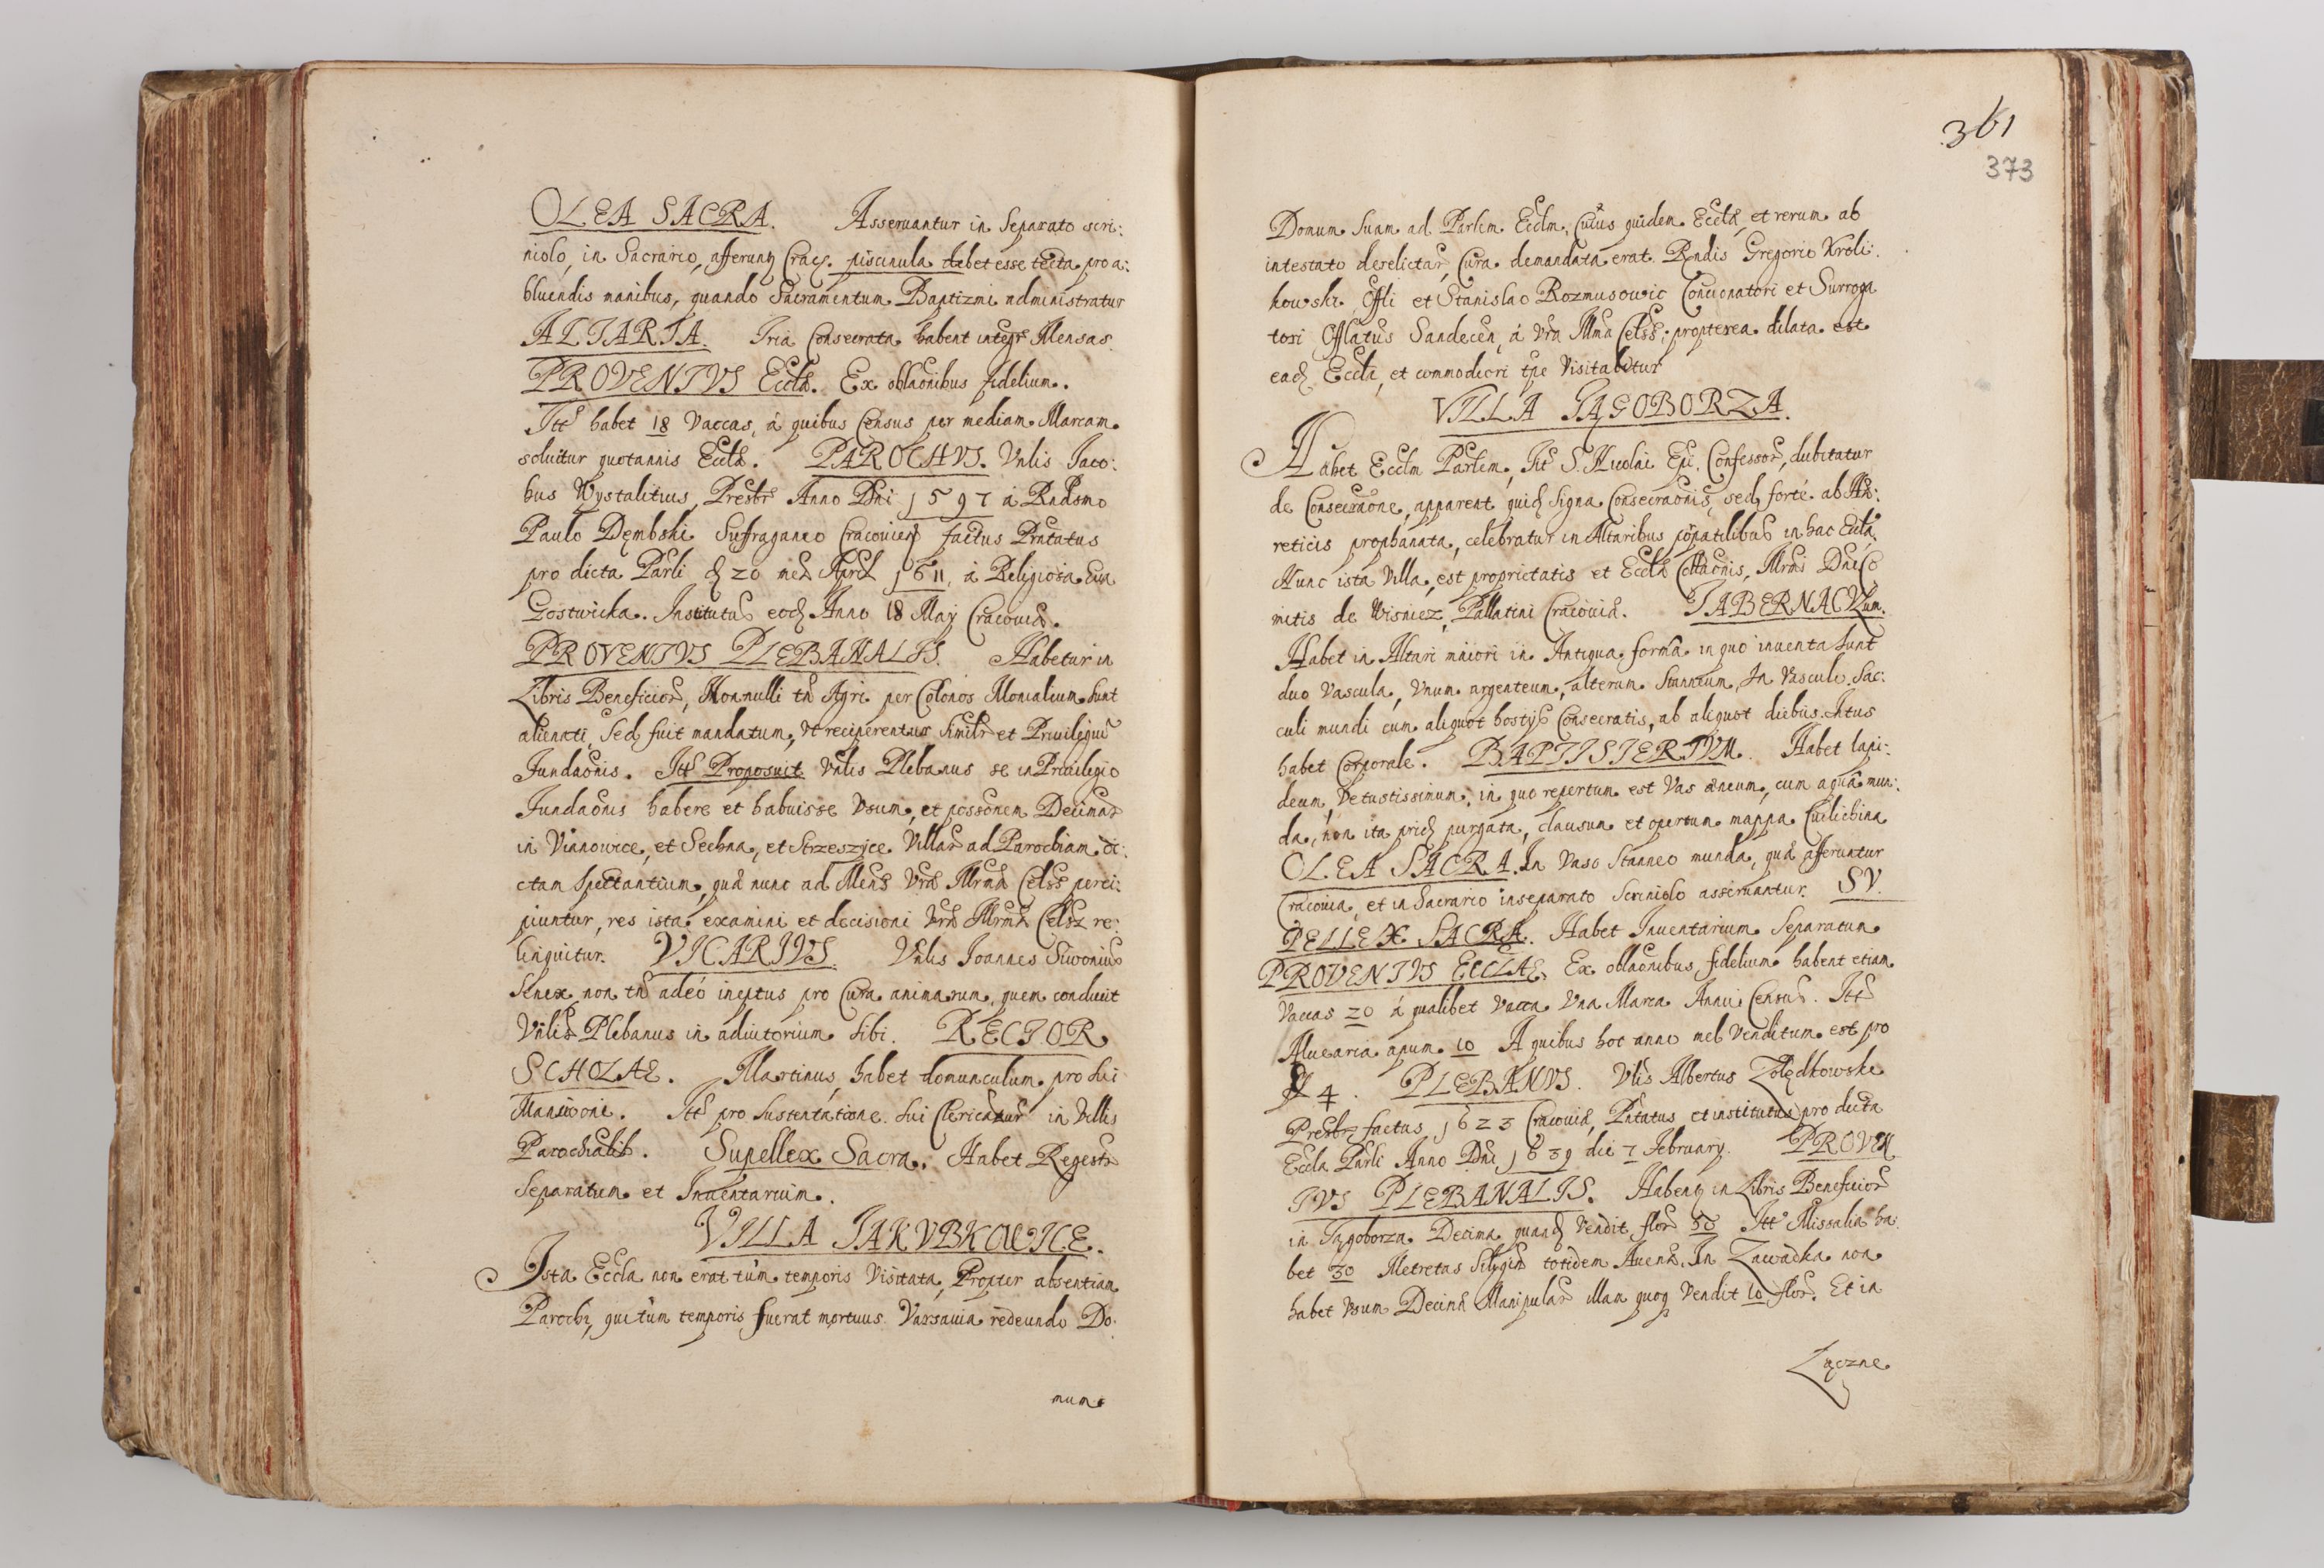 OLEA SACRA. Asseruantur in Separato scri:
niolo, in Sacrario, afferunt Crac. piscinula debet esse tecta pro a:
bluendis manibus, quando Sacramentum Baptizmi administratur
ALTARIA. Tria Consecrata habent integr Mensas.
PROVENTVS Eccla. Ex oblaonibus fidelium.
Itt habet 18 Vaccas, á quibus Census per mediam Marcam
soluitur quotannis Eccla. PAROCHVS. Vnlis Iaco:
bus Wystalitius, Presbr Anno Dni 1597 á Rndsmo
Paulo Dęmbski Suffraganeo Cracouien factus Prntatus
pro dicta Parli d 20 men April 1611, á Religiosa Eua
Gostwicka. Institutus eod Anno 18 Maÿ Cracouia.
PROVENTVS PLEBANALIS. Habetur in
Libris Beneficior, Nonnulli tn Agri per Colonos Monialium sunt
alienati, Sed fuit mandatum, vt reciperentur Similr et Priuilegiu
Fundaonis. Itt Proposuit Vnlis Plebanus se in Priuilegio
Fundaonis habere et habuisse Vsum, et possonem Decimar
in Vianowice, et Sechna, et Strzeszyce Villar ad Parochiam di:
ctam Spectantium, qua nunc ad Mens Vra Illrma Cels perci:
piuntur, res ista examini et decisioni Vra Illrma Cels re:
linquitur. VICARIVS. Vnlis Joannes Siwonius
Senex non tn adeó ineptus pro Cura animarum, quem conduxit
Vnlis Plebanus in adiutorium sibi. RECTOR
SCHOLAE. Martinus, habet domunculum pro sui
Mansioni. Itt pro Sustentatione sui Clericatur in Villis
Parochialib. Supellex Sacra. Habet Regestr
Separatum et Inuentarium.
VILLA IAKVBKOWICE.
Ista Eccla non erat tùm temporis Visitata, Propter absentiam
Parochi, qui tùm temporis fuerat mortuus Varsauia redeundo Do:
mum
361
373
Domum Suam ad Parlem Ecclm, Cuius quidem Eccla, et rerum ab
intestato derelictar, Cura demandata erat Rndis Gregorio Kroli:
kowski Offli et Stanislao Rozmusowic Concionatori et Surroga
tori Offlatus Sandecen, á Vra Illma Cels; propterea dilata est
ead Eccla, et commodiori tpe Visitabitur
VILLA TĄGOBORZA.
Habet Ecclm Parlem, Tit S. Nicolai Epi Confessor, dubitatur
de Consecraone, apparent quid Signa Consecraonis, sed forté ab Hæ:
reticis prophanata, celebratur in Altaribus portatilibus in hac Eccla.
Nunc ista Villa, est proprietatis et Eccla Collaonis, Illrmi Dni Co
mitis de Wisnicz, Pallatini Cracouia. TABERNACVLum.
Habet in Altari maiori in Antiqua forma in quo inuenta sunt
duo Vascula, Vnum argenteum, alterum Stanneum, In Vasculo Sac:
culi mundi cum aliquot hostijs Consecratis, ab aliquot diebus. Intus
habet Corporale. BAPTISTERIVM. Habet lapi:
deum, Vetustissimum, in quo repertum est Vas æneum, cum aqua mun:
da, non ita prid purgata, clausum et opertum mappa Cuilichina
OLEA SACRA. In Vaso Stanneo munda, qua afferuntur
Cracouia, et in Sacrario in separato Scriniolo asseruantur. SV.
PELLEX SACRA. Habet Inuentarium Separatum
PROVENTVS ECCLAE. Ex oblaonibus fidelium habent etiam
Vaccas 20 á qualibet Vacca Vna Marca Annui Census. Itt
Aluearia apum 10 A quibus hoc anno mel Venditum est pro
fl 4. PLEBANVS. Vlis Albertus Zolędkowski
Presbr factus 1623 Cracouia, Pntatus et institutus pro dicta
Eccla Parli Anno Dni 1639 die 7 February. PROVEN
TVS PLEBANALIS. Habent in Libris Beneficior
in Tągoborza Decima quand Vendit flor 50 Itt Missalia ha:
bet 30 Metretas Siligin totidem Auena. In Zawadka non
habet Vsum Decima Manipular illam quoq Vendit 10 flor. Et in
Łączne